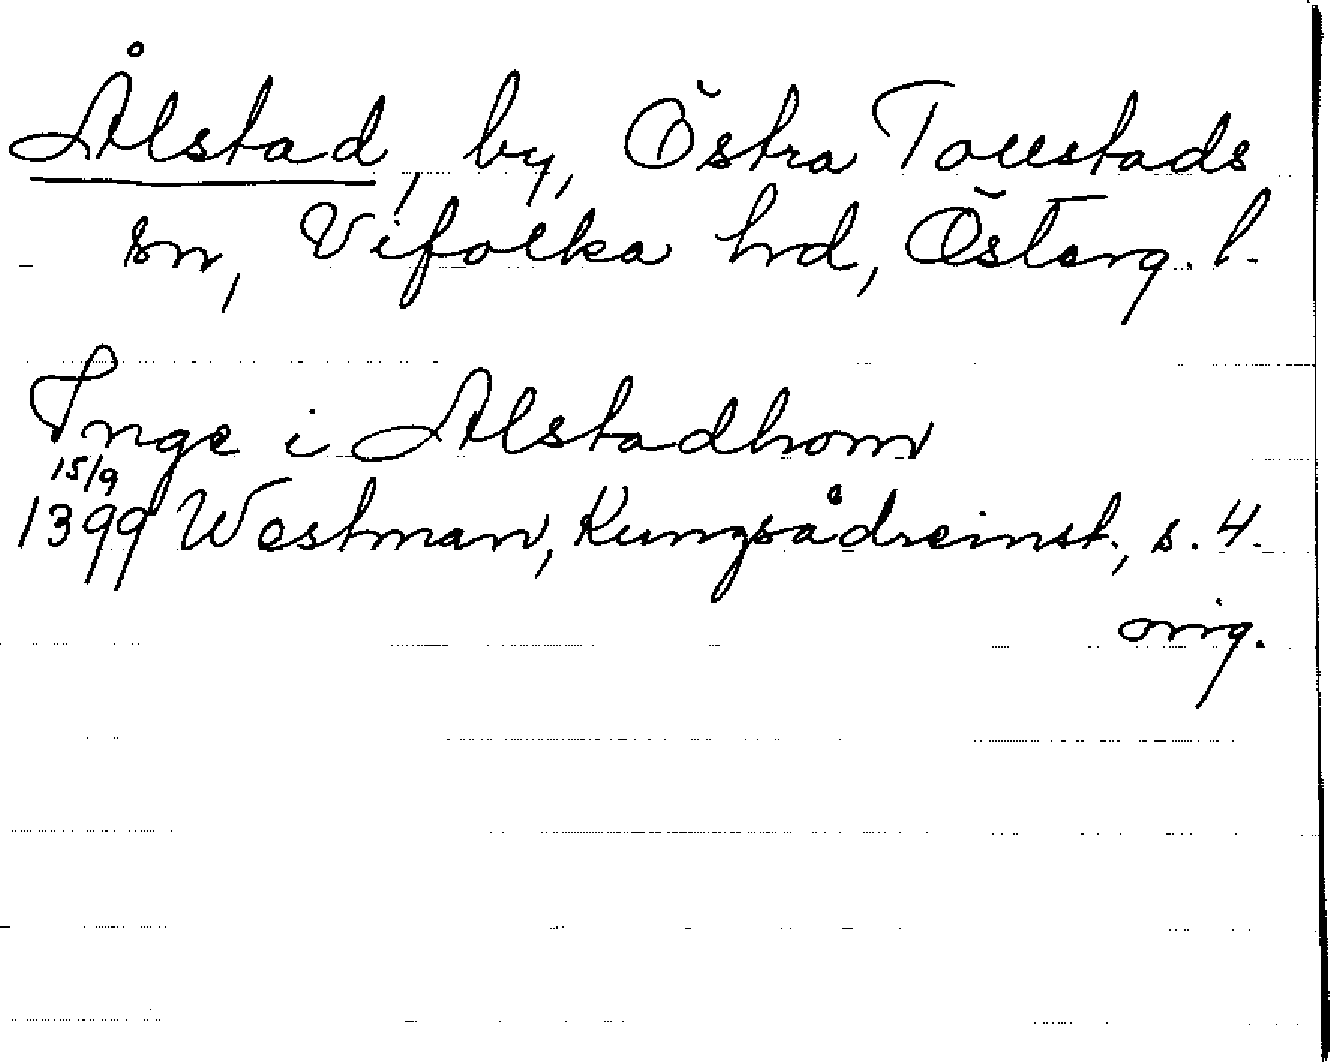 Ålstad, by, Östra Tollstads
sn, Vifolka hrd, Österg. l.
Inge i Alstadhom
15/9
1399 Westman, Kungsådreinst., s. 4.
orig.